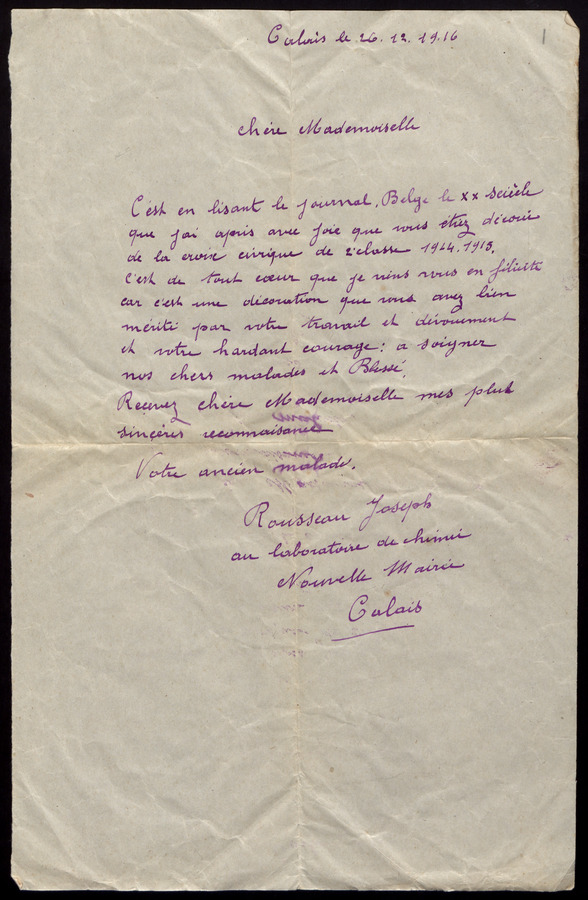 Calais le 26.12.1916
Chère Mademoiselle
C'est en lisant le journal, Belge le XX Sciècle
que j'ai apris avec joie que vous étiez décoré
de la croix civique de 2e classe 1914.1915.
C'est de tout cœur que je viens vous en félicité
car c'est une décoration que vous avez bien
mérité par votre travail et dévouement
et votre hardant courage: a soigner
nos chers malades et Blessé.
Recevez chère Mademoiselle mes plus
sincères reconnaisance
Votre ancien malade.
Rousseau Joseph
au laboratoire de chimie
Nouvelle Mairie
Calais